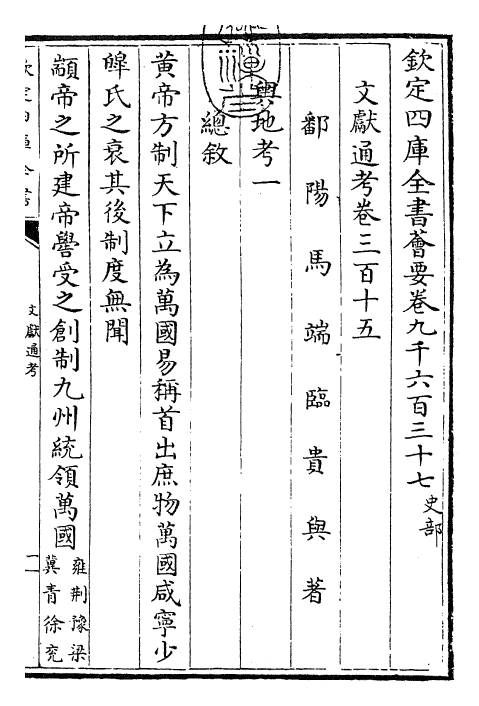 欽定四庫全書薈要卷九千六百三十七 史部
文獻通考卷三百十五
鄱陽馬端臨貴與著
輿地考一
總敘
黃帝方制天下立為萬國易稱首出庶物萬國咸寧少
皥氏之衰其後制度無聞
顓帝之所建帝嚳受之創制九州統領萬國 雍荆豫梁
冀青徐兖
文獻通考
一